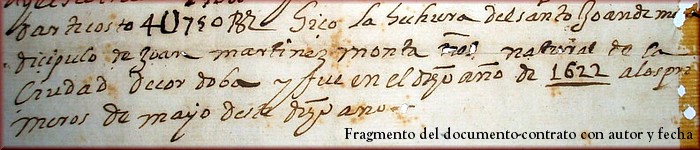 Hiço la hechura del santo Joan de me
dicipulo de Juan martinez monta natural de la
Ciudad de cordoba y fue en el dho año de 1622 a los pri
meros de mayo deste dho ano
Fragmento del documento-contrato con autor y fecha